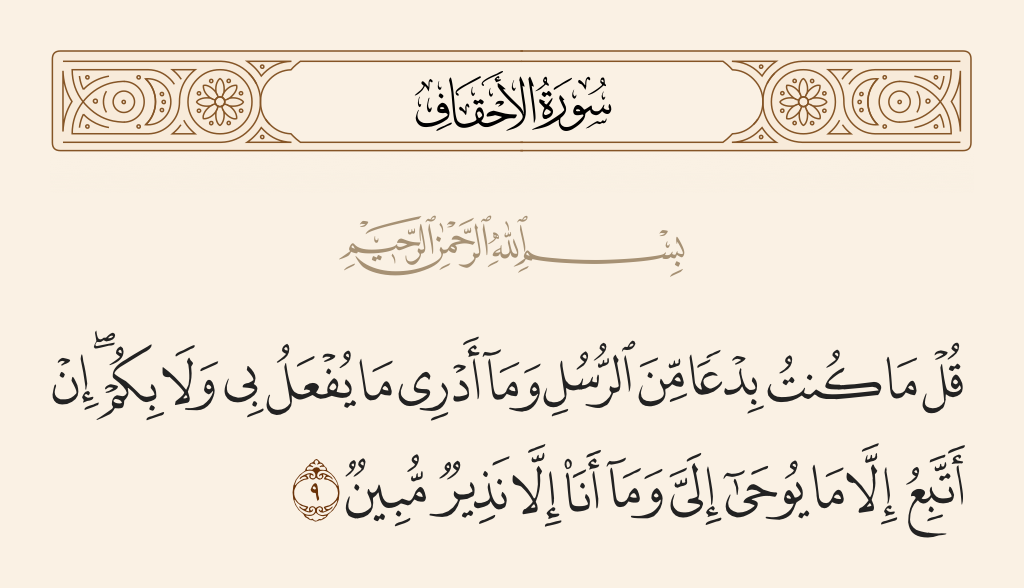 سُورَةُ الأَحْقَافِ
بِسْمِ ٱللَّهِ ٱلرَّحْمَٰنِ ٱلرَّحِيمِ
قُلْ مَا كُنتُ بِدْعًا مِّنَ ٱلرُّسُلِ وَمَآ أَدْرِى مَا يُفْعَلُ بِى وَلَا بِكُمْ ۖ إِنْ
أَتَّبِعُ إِلَّا مَا يُوحَىٰٓ إِلَىَّ وَمَآ أَنَا۠ إِلَّا نَذِيرٌ مُّبِينٌ ٩